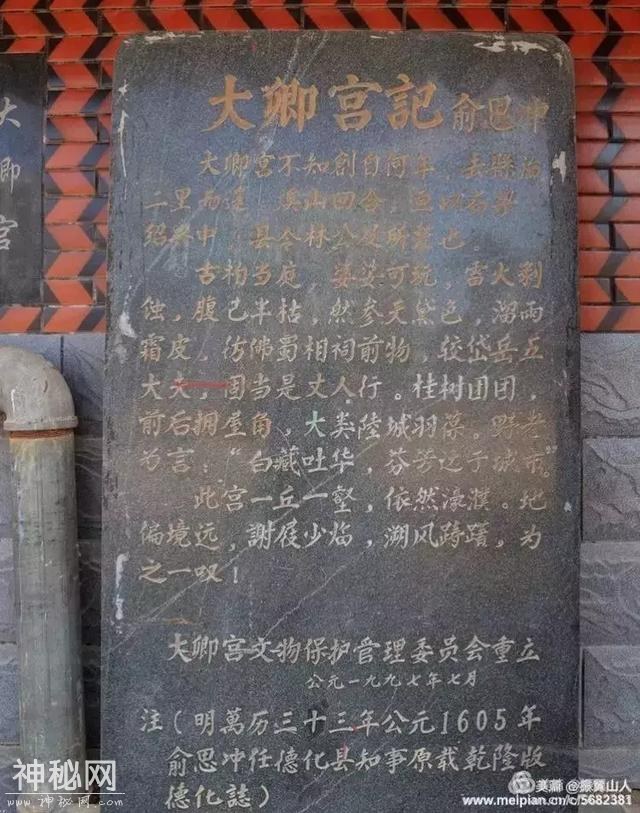 大卿宮
大卿宮記 俞思冲
大卿宮不知創自何年，去縣治
二里而近，溪山四合，
紹興中，县令林公及所建也。
古柏当庭，婆娑可玩，雷火剥
蚀，腹已半枯，然参天黛色，溜雨
霜皮，仿佛蜀相祠前物，较岱岳五
大夫，固当是丈人行。桂树团团，
前后拥屋角，大类陸城羽葆。野老
为言：“白藏吐华，芬芳达于城市。”
此宫一丘一壑，依然濠濮。地
偏境远，謝屐少焰，溯风踌躇，为
之一叹！
大卿宮文物保护管理委员会重立
公元一九九七年七月
注（明萬历三十三年公元1605年
俞思冲任德化县知事原载乾隆版
德化誌）
神秘网
www.神秘网.com
美篇 @振翼山人
www.meipian.cn/c/5682381